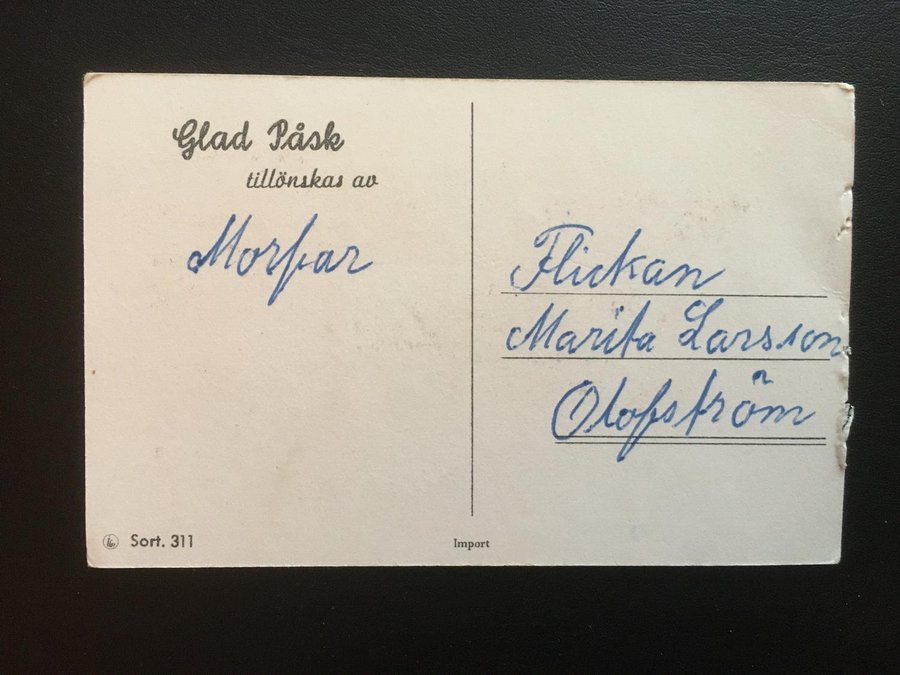 Glad Påsk
tillönskas av
Morfar
Flickan
Marita Larsson
Olofström
Sort. 311
Import